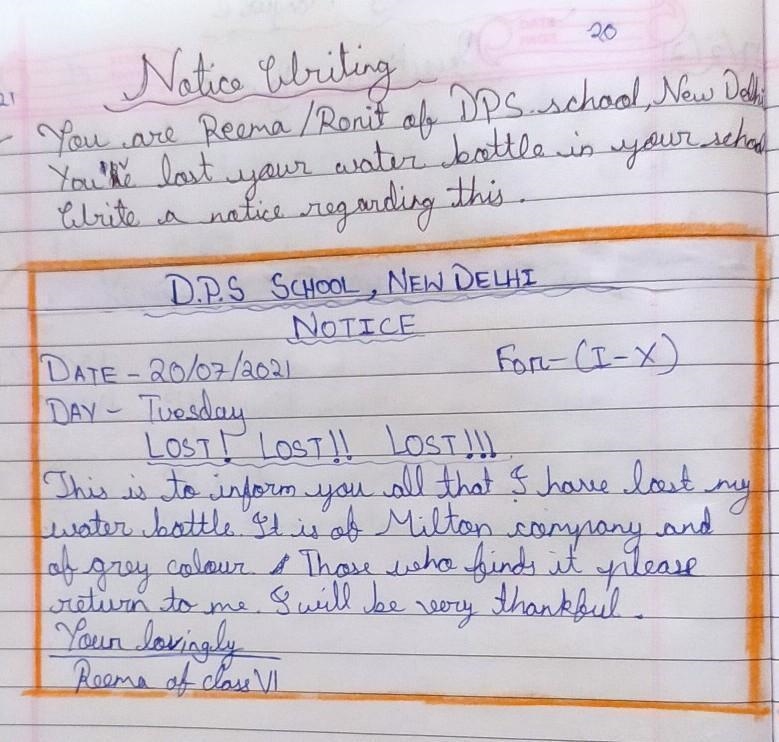 20
21
Notice Writing
You are Reema/Ronit of DPS school, New Delhi
You've lost your water bottle in your school
Write a notice regarding this.
D.P.S SCHOOL, NEW DELHI
NOTICE
DATE - 20/07/2021 For - (I - X)
DAY - Tuesday
LOST! LOST!! LOST!!!
This is to inform you all that I have lost my
water bottle. It is of Milton company and
of grey colour. Those who finds it please
return to me. I will be very thankful.
Your lovingly
Reema of class VI